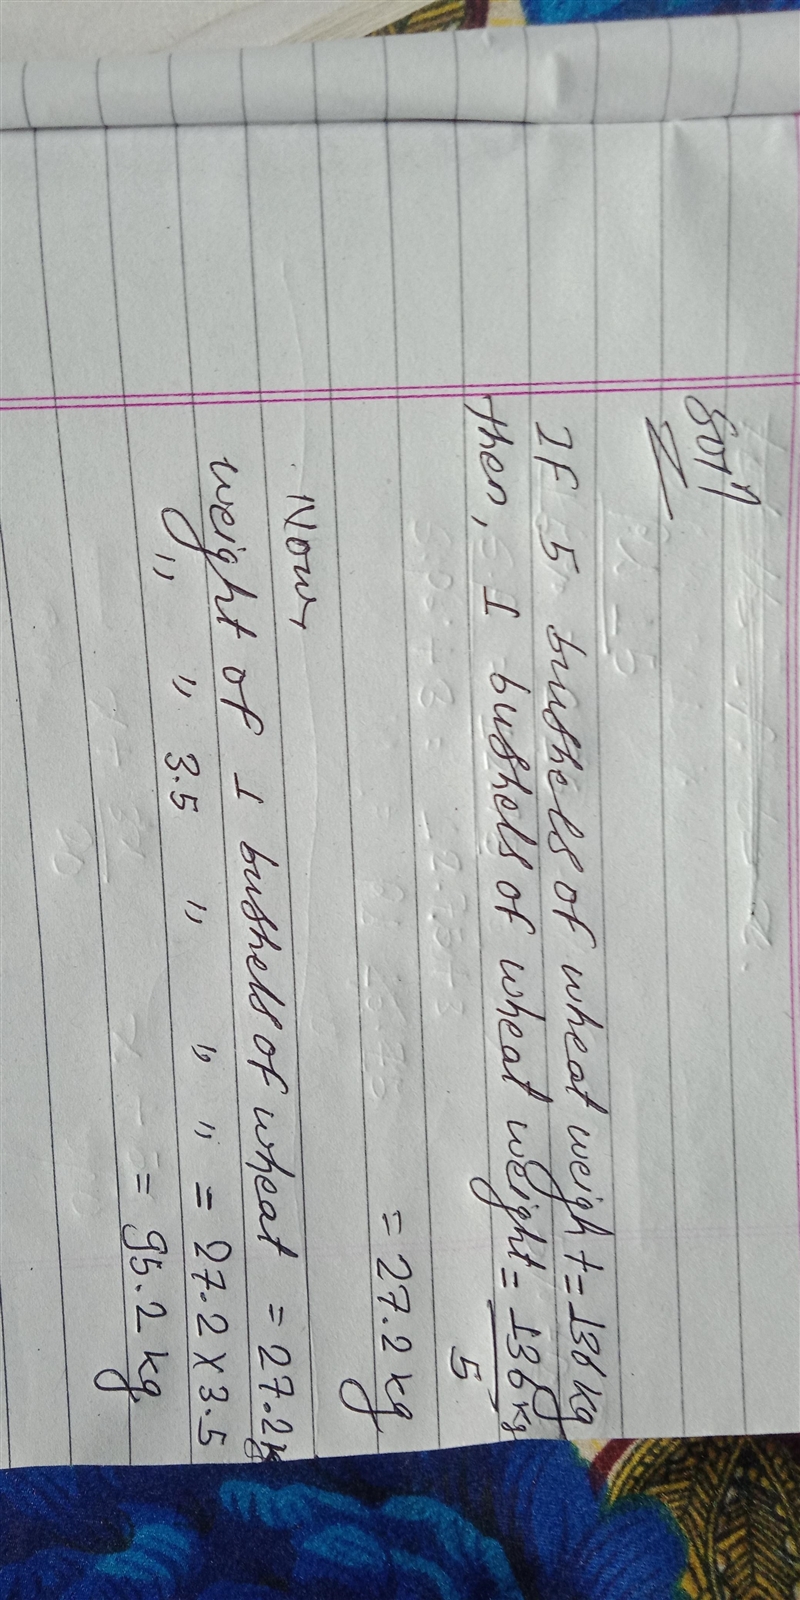 Soln
IF 5 bushels of wheat weight = 136 kg
then, 1 bushels of wheat weight = 136 kg
5
= 27.2 kg
Now,
weight of 1 bushels of wheat = 27.2 kg
,, ,, 3.5 ,, ,, ,, = 27.2 x 3.5
= 95.2 kg